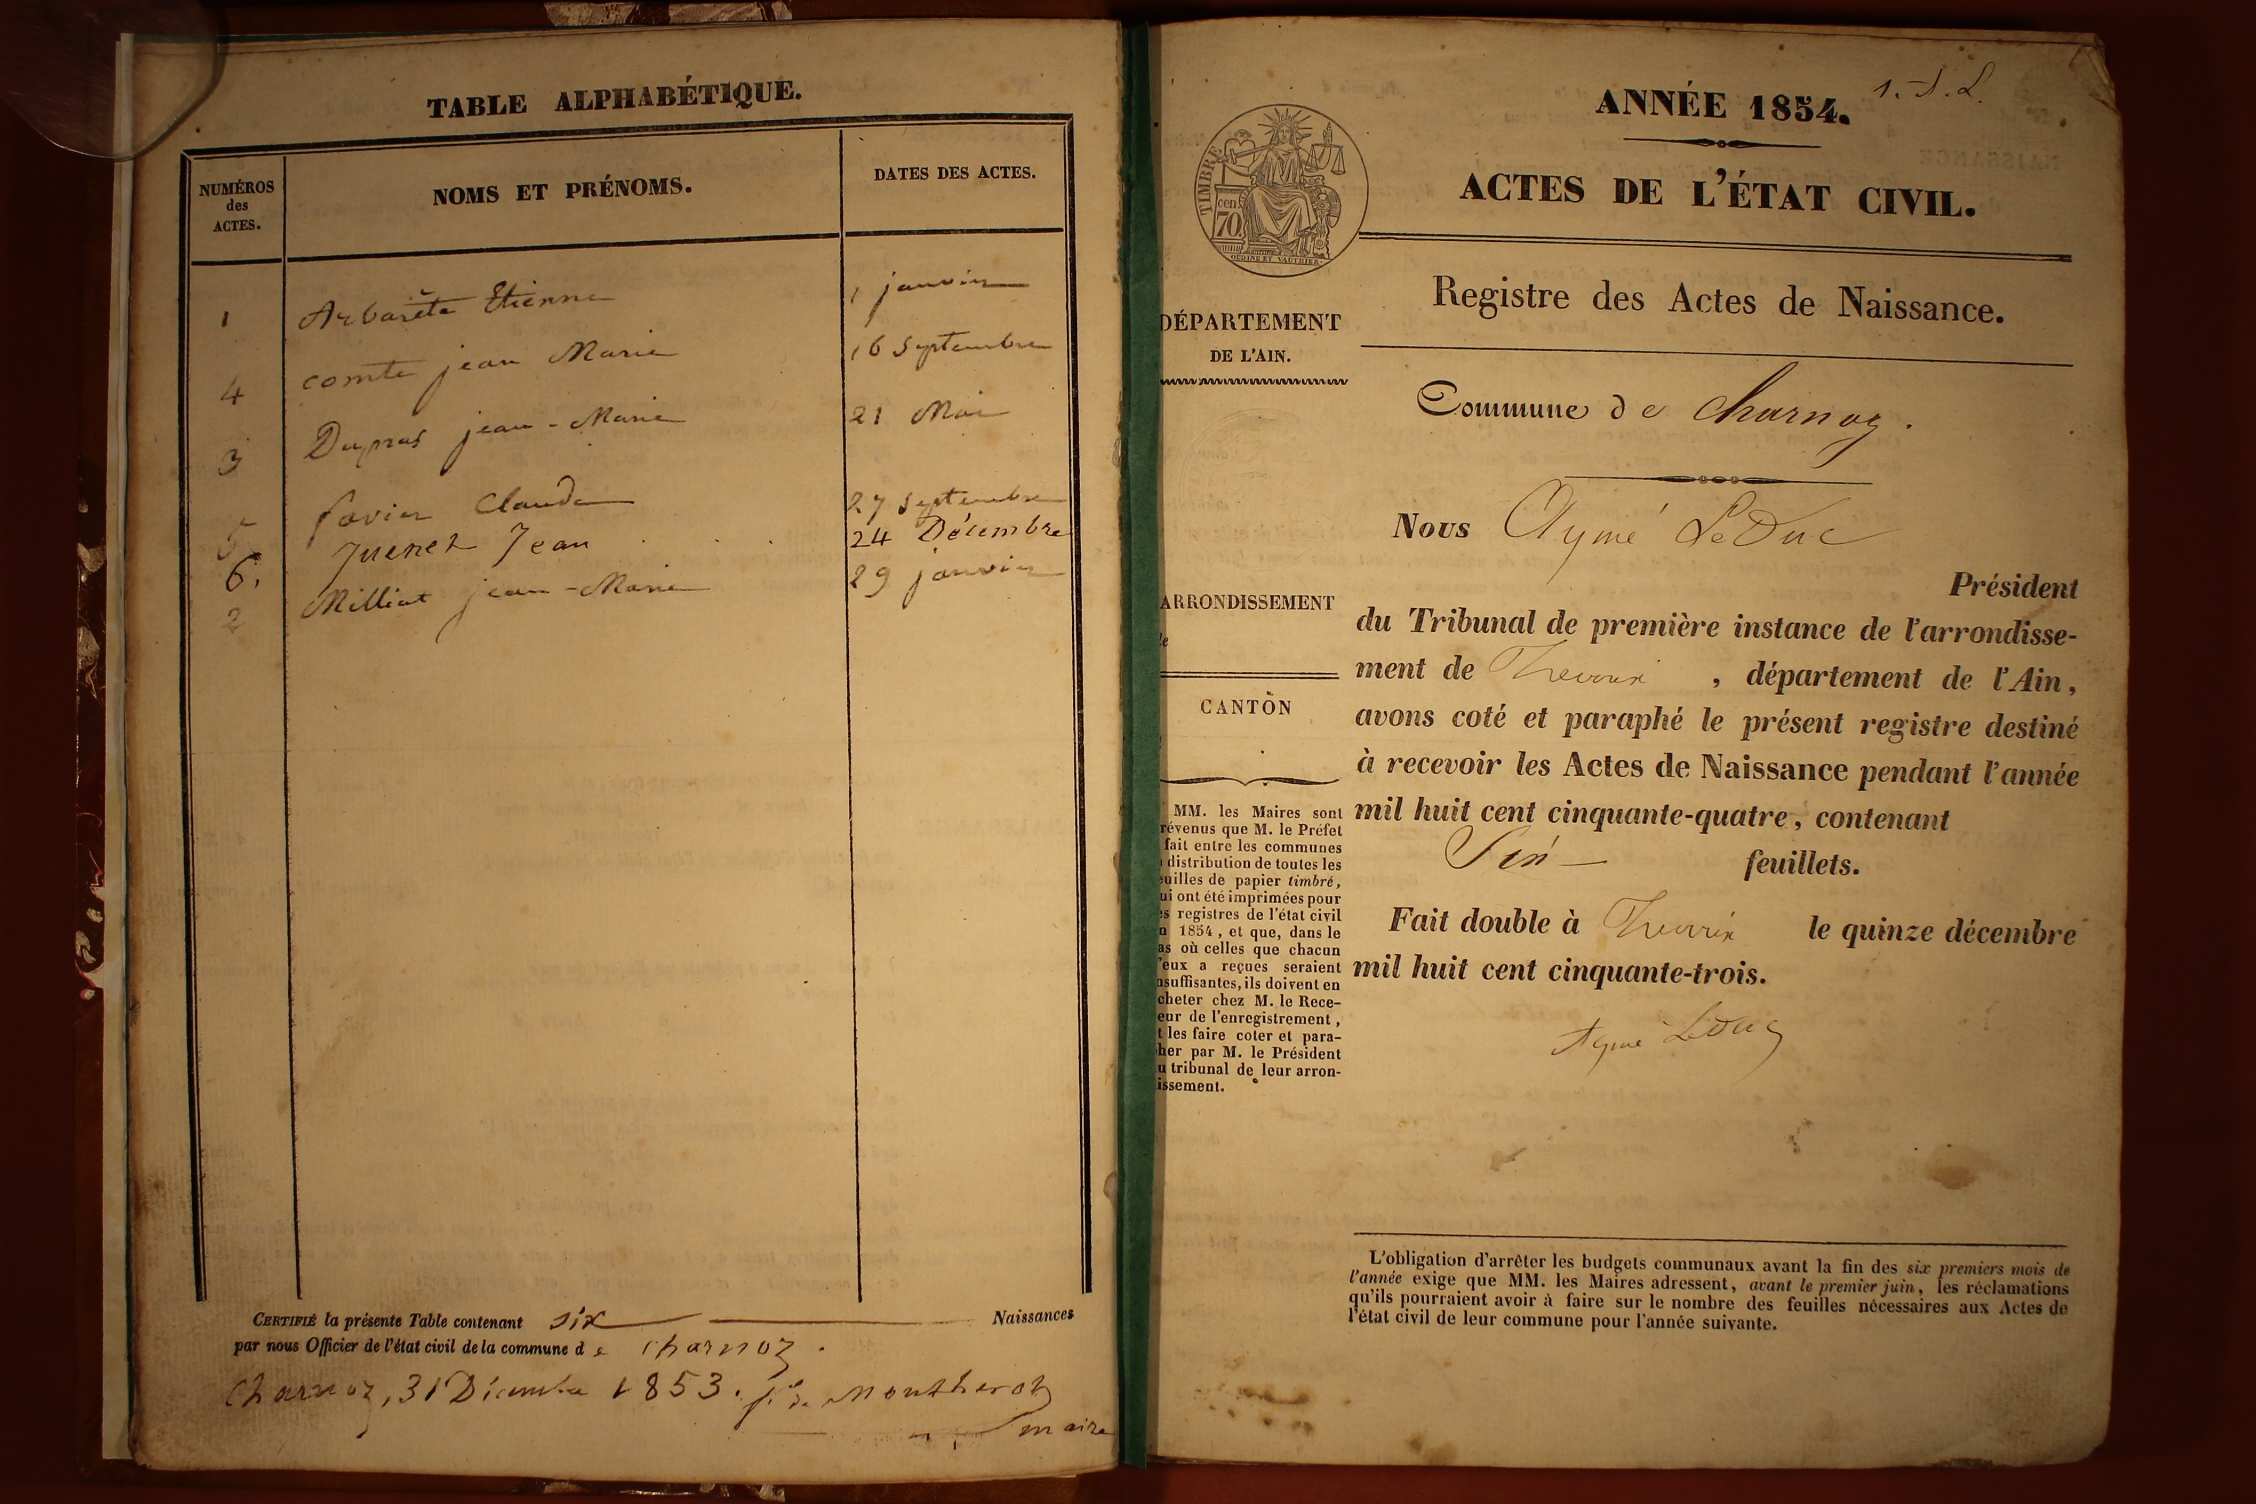 TABLE ALPHABÉTIQUE.
NUMÉROS
des
ACTES.
NOMS ET PRÉNOMS.
DATES DES ACTES.
1 Arbarète Etienne 1 janvier
4 comte jean Marie 16 Septembre
3 Dupras jean-Marie 21 Mai
5 favier Claude 27 Septembre
6. Juenet Jean 24 Décembre
2 Milliat jean-Marie 29 janvier
CERTIFIÉ la présente Table contenant six Naissances
par nous Officier de l'état civil de la commune de charnoz.
Charnoz, 31 Décembre 1853. de Montherot
maire
1. A. L.
ANNÉE 1854.
ACTES DE L'ÉTAT CIVIL.
TIMBRE
cen.
70
Registre des Actes de Naissance.
DÉPARTEMENT
DE L'AIN.
Commune de Charnoz.
Nous Aymé LeDuc
Président
du Tribunal de première instance de l'arrondisse-
ment de Trevoux, département de l'Ain,
avons coté et paraphé le présent registre destiné
à recevoir les Actes de Naissance pendant l'année
mil huit cent cinquante-quatre, contenant
Six feuillets.
Fait double à Trevoux le quinze décembre
mil huit cent cinquante-trois.
Aymé LeDuc
ARRONDISSEMENT
CANTON
MM. les Maires sont
révenus que M. le Préfet
fait entre les communes
distribution de toutes les
euilles de papier timbré,
ui ont été imprimées pour
es registres de l'état civil
n 1854, et que, dans le
as où celles que chacun
'eux a reçues seraient
nsuffisantes, ils doivent en
cheter chez M. le Rece-
eur de l'enregistrement,
t les faire coter et para-
her par M. le Président
u tribunal de leur arron-
issement.
L'obligation d'arrêter les budgets communaux avant la fin des six premiers mois de
l'année exige que MM. les Maires adressent, avant le premier juin, les réclamations
qu'ils pourraient avoir à faire sur le nombre des feuilles nécessaires aux Actes de
l'état civil de leur commune pour l'année suivante.